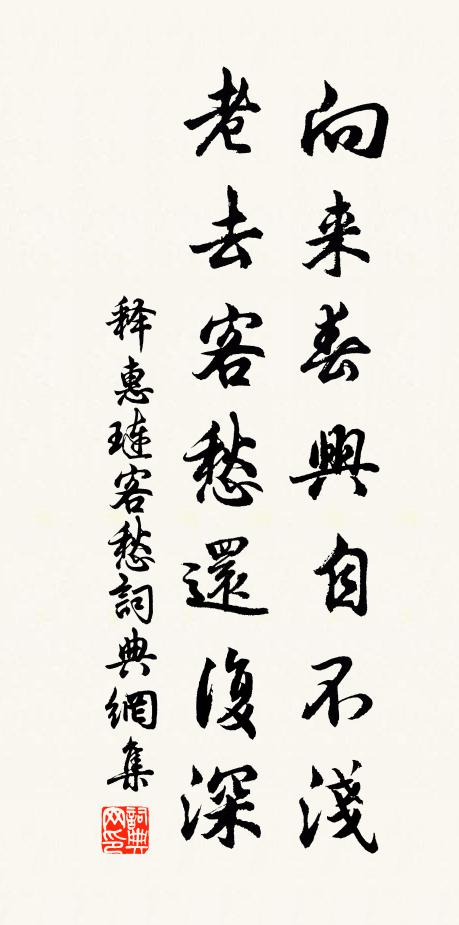 向来春興自不淺
老去客愁還復深
释惠琏客愁詞典網集
詞典网印